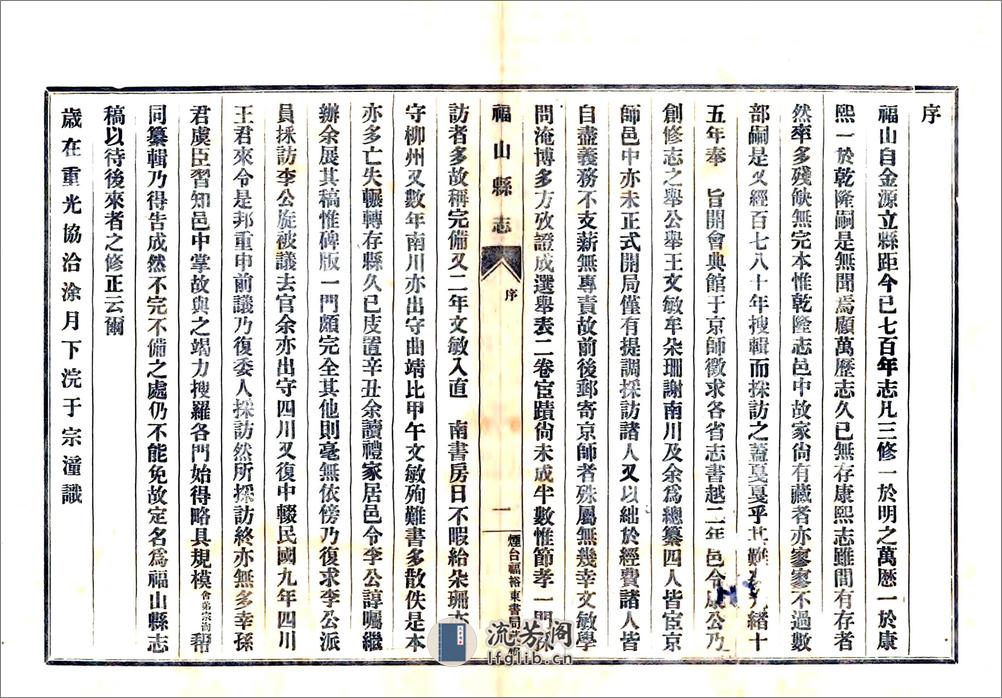 序
福山自金源立縣距今已七百年志凡三修一於明之萬歷一於康
熙一於乾隆嗣是無聞焉顧萬歷志久已無存康熙志雖間有存者
然率多殘缺無完本惟乾隆志邑中故家尚有藏者亦寥寥不過數
部嗣是又經百七八十年搜輯而採訪之蓋戛戛乎其難 緒十
五年奉 旨開會典館于京師徵求各省志書越二年邑令 公乃
創修志之舉公舉王文敏牟朵珊謝南川及余爲總纂四人皆宦京
師邑中亦未正式開局僅有提調採訪諸人又以絀於經費諸人皆
自盡義務不支薪無專責故前後郵寄京師者殊屬無幾幸文敏學
問淹博多方攷證成選舉表二卷宦蹟尚未成半數惟節孝一門採
福山縣志
序
一
煙台福裕東書局
訪者多故稱完備又二年文敏入直 南書房日不暇給朵珊
守柳州又數年南川亦出守曲靖比甲午文敏殉難書多散佚是本
亦多亡失輾轉存縣久已庋置辛丑余讀禮家居邑令李公諄囑繼
辦余展其稿惟碑版一門頗完全其他則毫無依傍乃復求李公派
員採訪李公旋被議去官余亦出守四川又復中輟民國九年四川
王君來令是邦重申前議乃復委人採訪然所採訪終亦無多幸孫
君虞臣習知邑中掌故與之竭力搜羅各門始得略具規模舍弟宗潼幫
同纂輯乃得告成然不完不備之處仍不能免故定名爲福山縣志
稿以待後來者之修正云爾
歲在重光協洽涂月下浣于宗潼識
流芳阁
lfglib.cn